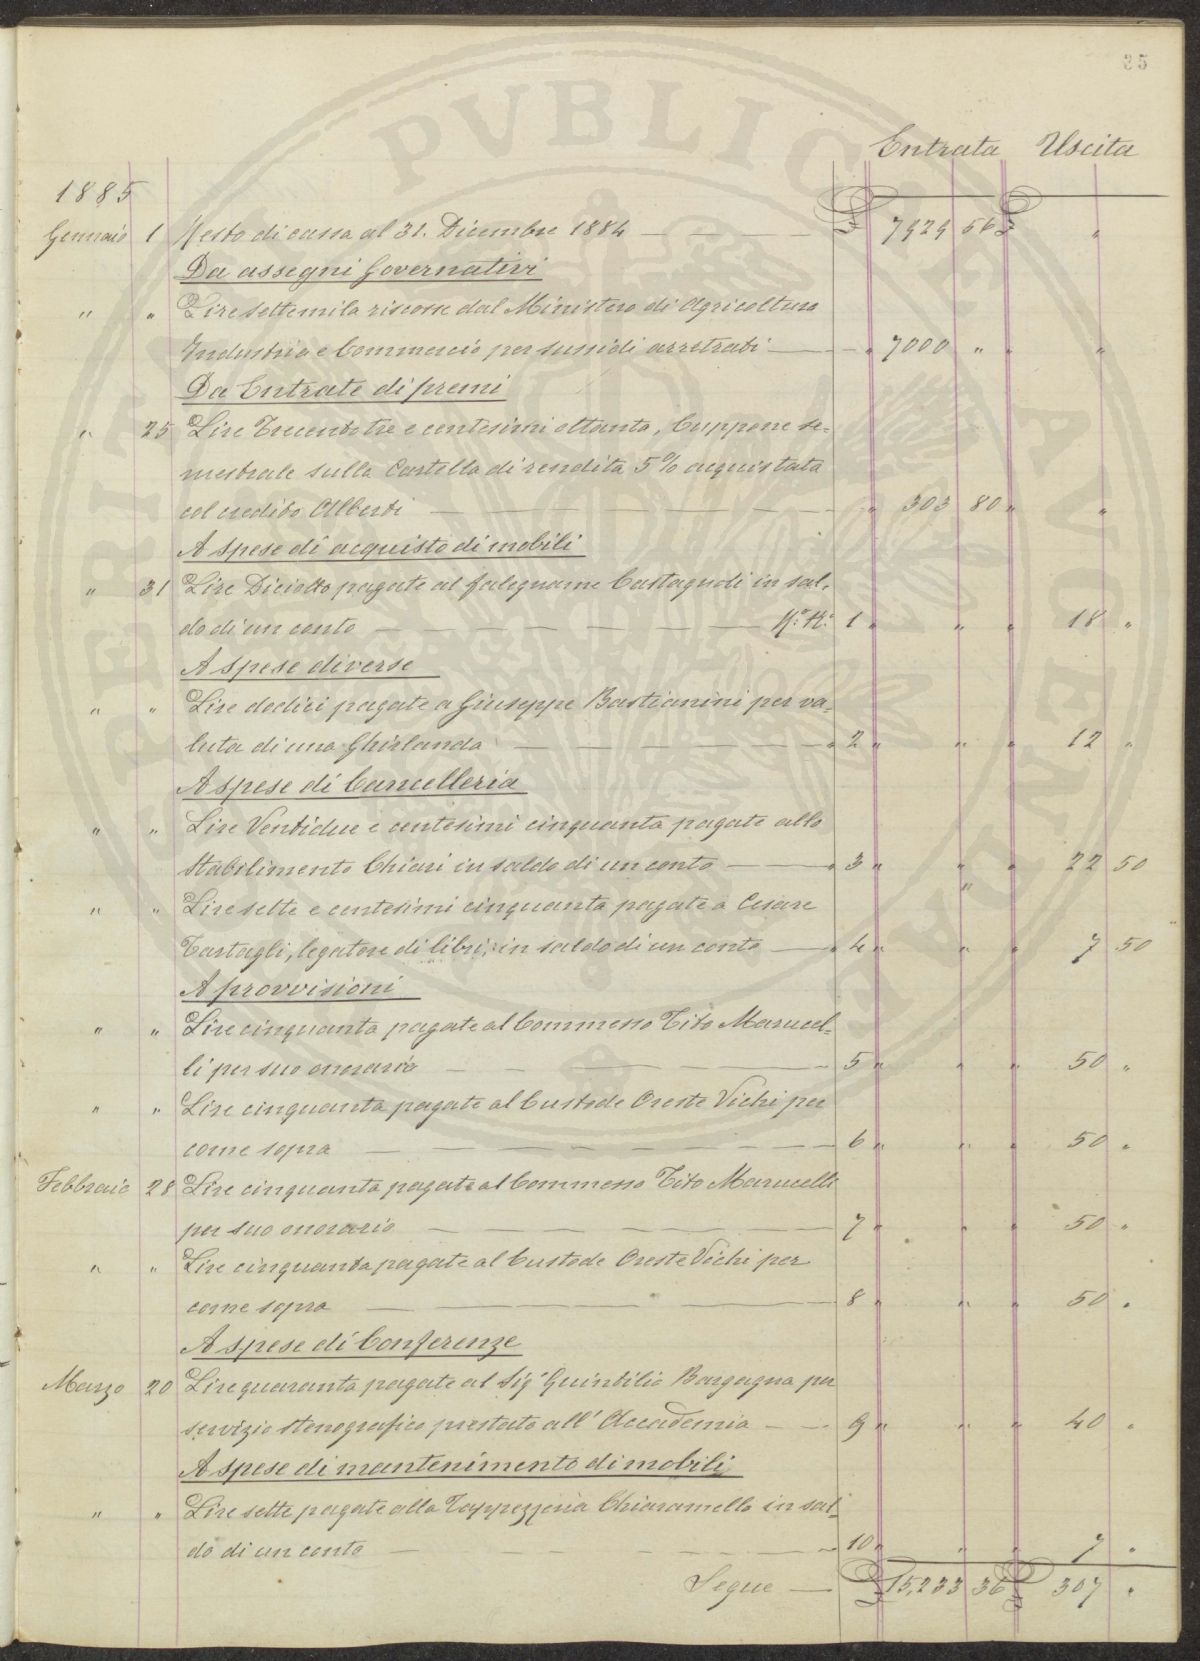 35
Entrata Uscita
1885
Gennaio 1 Resto di cassa al 31. Dicembre 1884 — £ 7929 56 £ "
Da assegni Governativi
" " Lire settemila riscosse dal Ministero di Agricoltura
Industria e Commercio per sussidi arretrati — " 7000 " " "
Da Entrate di premi
" 25 Lire Trecentotre e centesimi ottanta, Cuppone se=
mestrale sulla Cartella di rendita 5% acquistata
col credito Alberti — " 303 80 " "
A spese di acquisto di mobili
" 31 Lire Diciotto pagate al falegname Castagnoli in sal=
do di un conto — 1 " " " 18 "
A spese diverse
" " Lire dodici pagate a Giuseppe Bastianini per va=
luta di una Ghirlanda — " 2 " " " 12 "
A spese di Cancelleria
" " Lire Ventidue e centesimi cinquanta pagate allo
Stabilimento Chiari in saldo di un conto — " 3 " " " 22 50
" " Lire sette e centesimi cinquanta pagate a Cesare
Tartagli, legatore di libri, in saldo di un conto — " 4 " " " 7 50
A provvisioni
" " Lire cinquanta pagate al Commesso Tito Marucel=
li per suo onorario — 5 " " " 50 "
" " Lire cinquanta pagate al Custode Oreste Vichi per
come sopra — 6 " " " 50 "
Febbraio 28 Lire cinquanta pagate al Commesso Tito Marucelli
per suo onorario — 7 " " " 50 "
" " Lire cinquanta pagate al Custode Oreste Vichi per
come sopra — 8 " " " 50 "
A spese di Conferenze
Marzo 20 Lire quaranta pagate al Sigr Quintilio Bargagna per
servizio stenografico prestato all'Accademia — 9 " " " 40 "
A spese di mantenimento di mobili
" " Lire sette pagate alla Tappezzeria Chiaramella in sal=
do di un conto — 10 " " " 7 "
Segue — £ 15,233 36 £ 307 "